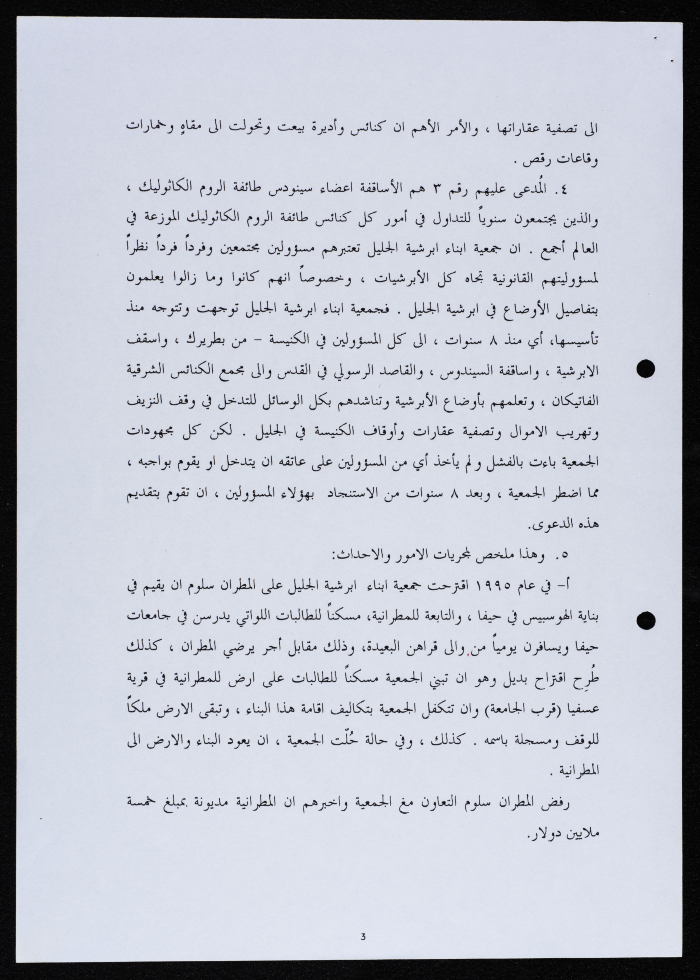 الى تصفية عقاراتها ، والأمر الأهم ان كنائس وأديرة بيعت وتحولت الى مقاهٍ وخمارات
وقاعات رقص .
٤. المُدعى عليهم رقم ٣ هم الأساقفة اعضاء سينودس طائفة الروم الكاثوليك ،
والذين يجتمعون سنوياً للتداول في أمور كل كنائس طائفة الروم الكاثوليك الموزعة في
العالم أجمع . ان جمعية ابناء ابرشية الجليل تعتبرهم مسؤولين مجتمعين وفرداً فرداً نظراً
لمسؤوليتهم القانونية تجاه كل الأبرشيات ، وخصوصاً انهم كانوا وما زالوا يعلمون
بتفاصيل الأوضاع في ابرشية الجليل . فجمعية ابناء ابرشية الجليل توجهت وتتوجه منذ
تأسيسها، أي منذ ٨ سنوات ، الى كل المسؤولين في الكنيسة – من بطريرك ، واسقف
الابرشية ، واساقفة السيندوس ، والقاصد الرسولي في القدس والى مجمع الكنائس الشرقية
الفاتيكان ، وتعلمهم بأوضاع الأبرشية وتناشدهم بكل الوسائل للتدخل في وقف النزيف
وتهريب الاموال وتصفية عقارات وأوقاف الكنيسة في الجليل . لكن كل مجهودات
الجمعية باءت بالفشل ولم يأخذ أي من المسؤولين على عاتقه ان يتدخل او يقوم بواجبه ،
مما اضطر الجمعية ، وبعد ٨ سنوات من الاستنجاد بهؤلاء المسؤولين ، ان تقوم بتقديم
هذه الدعوى.
٥. وهذا ملخص لمجريات الامور والاحداث:
أ– في عام ١٩٩٥ اقترحت جمعية ابناء ابرشية الجليل على المطران سلوم ان يقيم في
بناية الهوسبيس في حيفا ، والتابعة للمطرانية، مسكناً للطالبات اللواتي يدرسن في جامعات
حيفا ويسافرن يومياً من والى قراهن البعيدة، وذلك مقابل أجر يرضي المطران ، كذلك
طُرح اقتراح بديل وهو ان تبني الجمعية مسكناً للطالبات على ارض للمطرانية في قرية
عسفيا (قرب الجامعة) وان تتكفل الجمعية بتكاليف اقامة هذا البناء ، وتبقى الارض ملكاً
للوقف ومسجلة باسمه . كذلك ، وفي حالة حُلّت الجمعية ، ان يعود البناء والارض الى
المطرانية .
رفض المطران سلوم التعاون مغ الجمعية واخبرهم ان المطرانية مديونة بمبلغ خمسة
ملايين دولار.
3